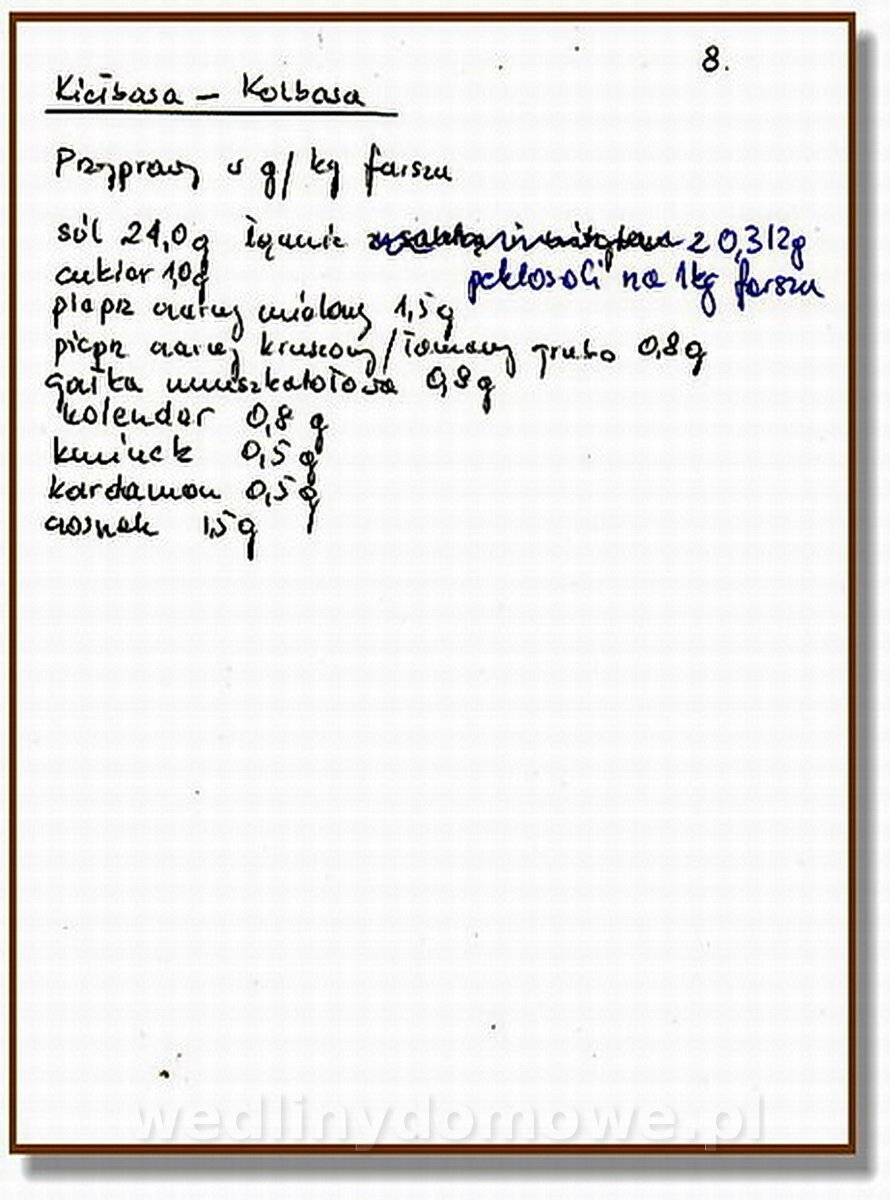 8.
Kiełbasa – Kolbasa
Przyprawy w g/kg farszu
sól 24,0g łącznie z 0,312g
peklosoli na 1kg farszu
cukier 1,0g
pieprz czarny mielony 1,5g
pieprz czarny kruszony/łamany grubo 0,8g
gałka muszkatołowa 0,8g
kolender 0,8 g
kminek 0,5g
kardamon 0,5g
czosnek 1,5g
wedlinydomowe.pl